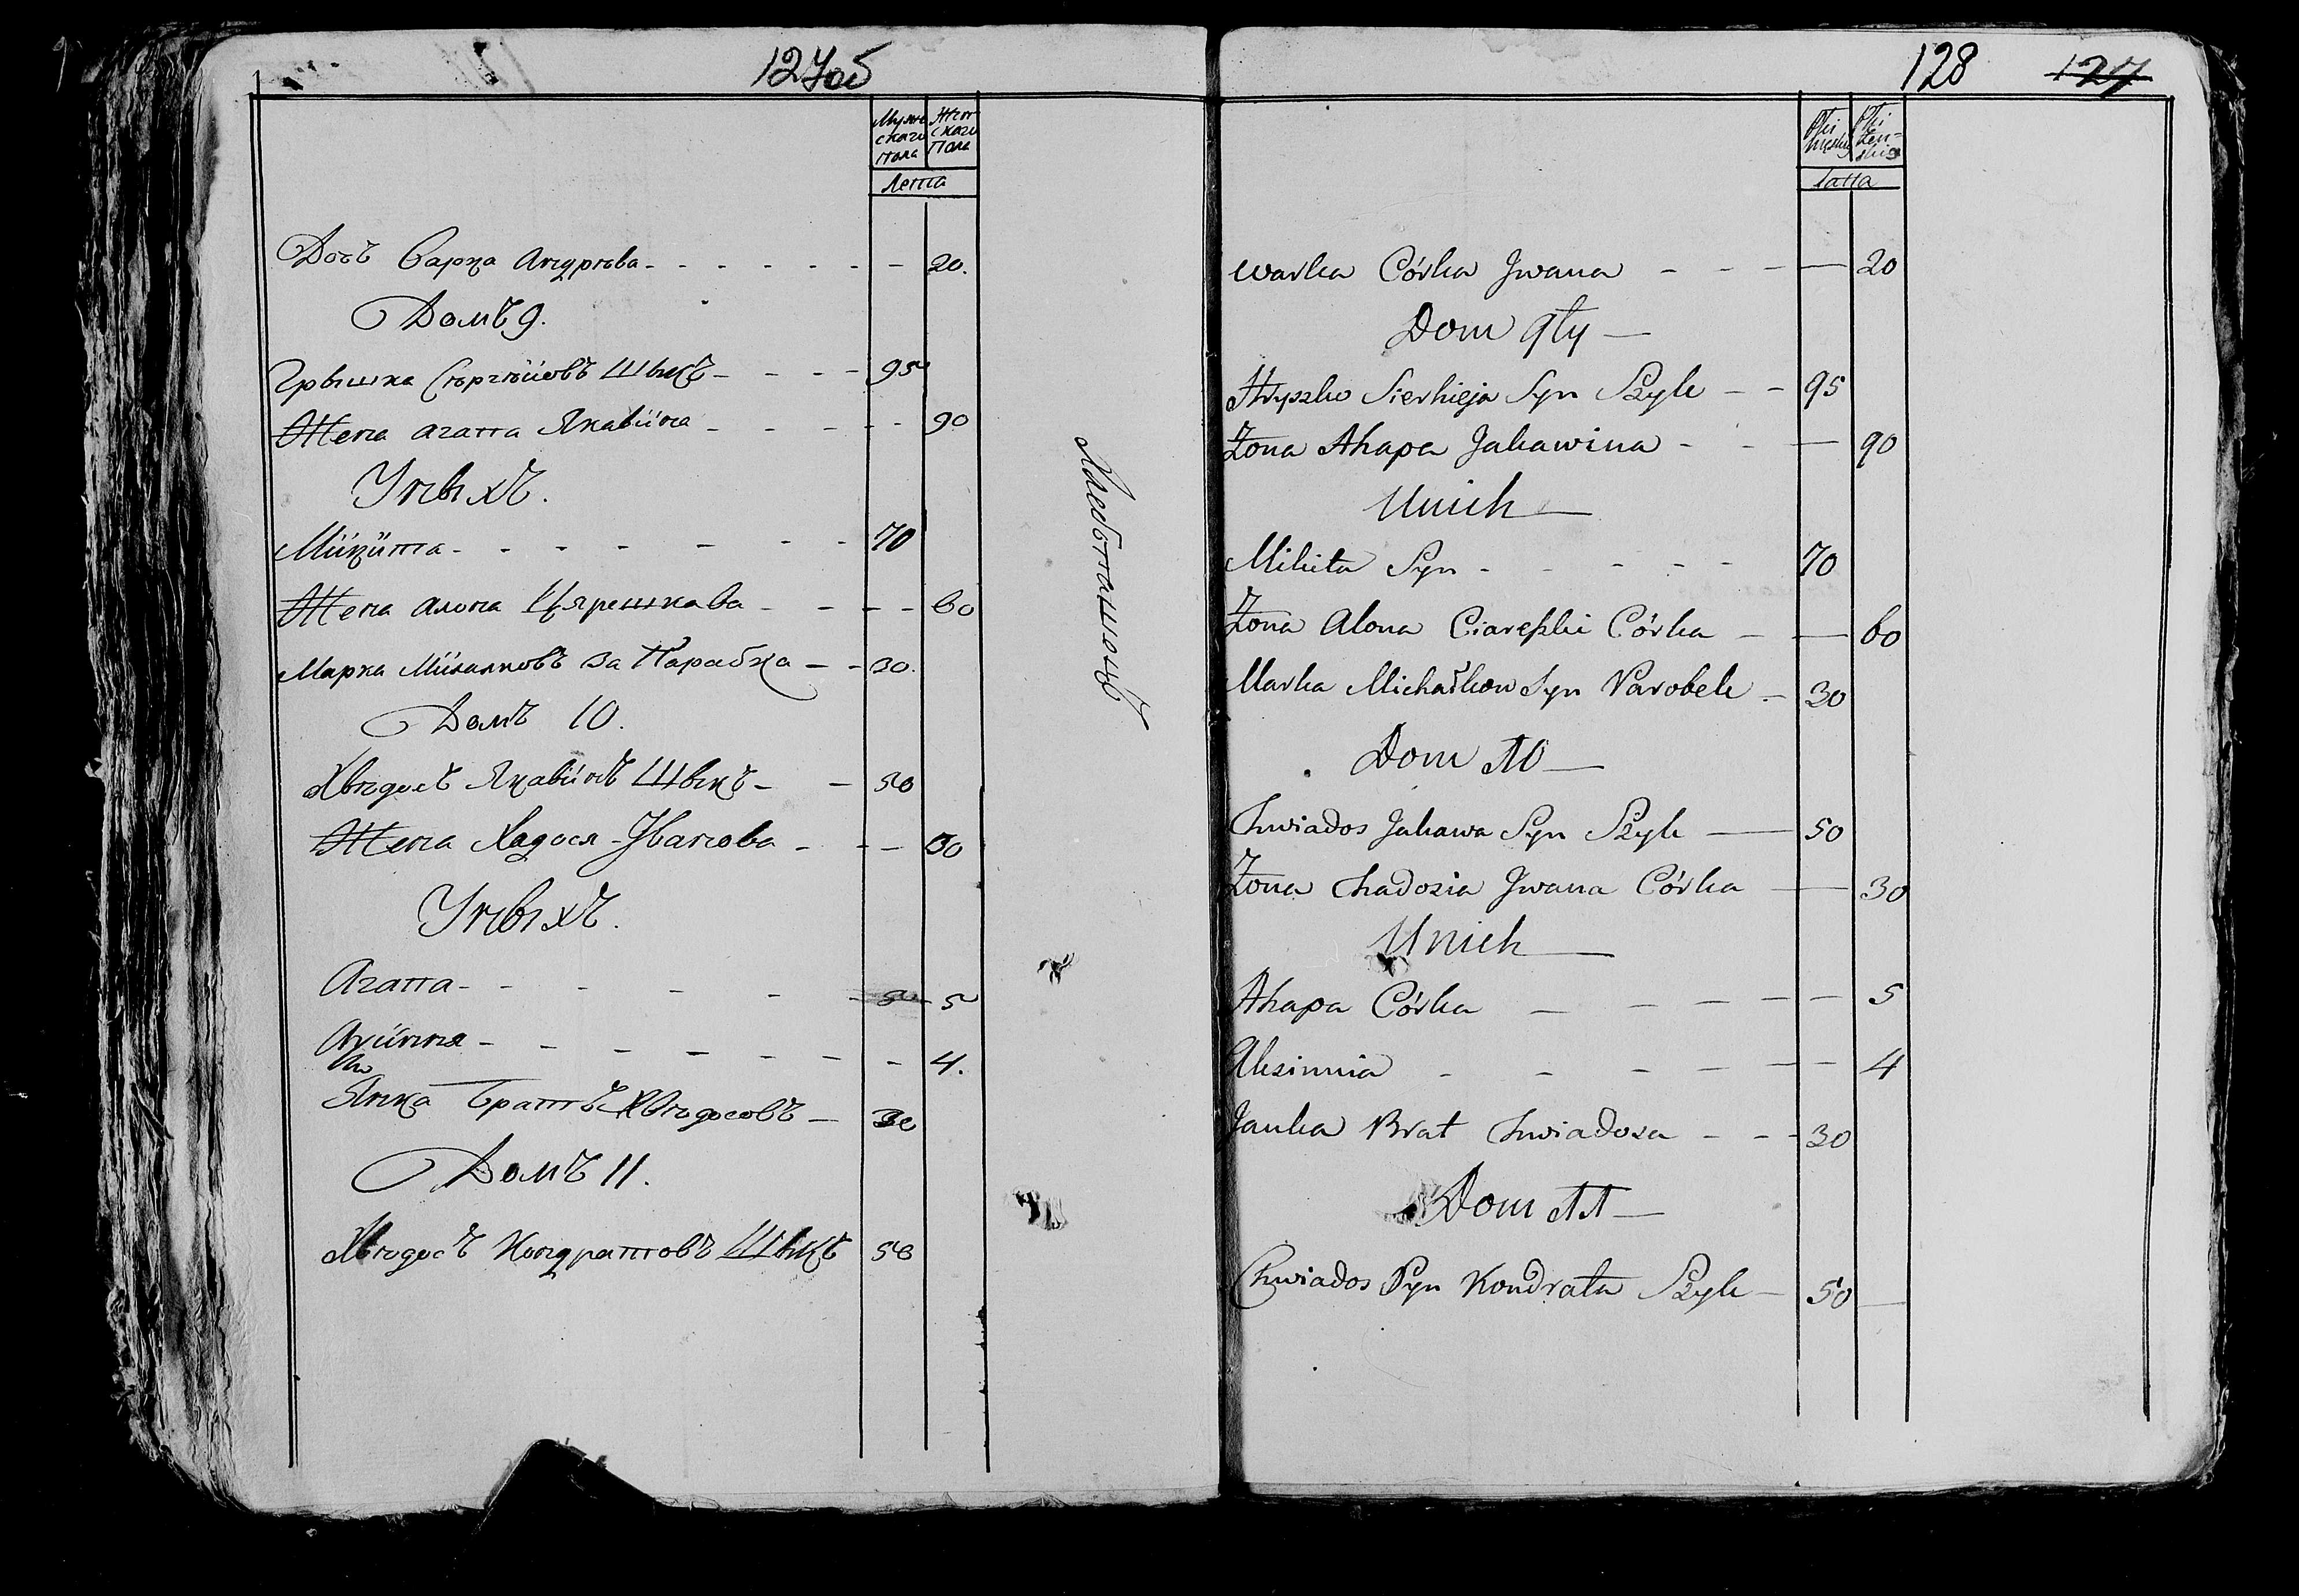 127об
Мужескаго Пола
Женскаго Пола
Лета
Дочъ Варка Андрѣва - - - - - - - 20.
Домъ 9.
Грышка Сѣргѣйовъ Шыкъ - - - - 95
Жена Агапа Якавiина - - - - - 90
Унихъ.
Микита - - - - - - - 70
Жена Алона Цярешкава - - - - 60
Марка Михалковъ за Парабка - - 30.
Домъ 10.
Хвѣдосъ Якавiинъ Шыкъ - - 50
Жена Хадося Иванова - - - 30
Унихъ.
Агапа - - - - - - 5
Аксинья - - - - - - - - 4.
Янка Братъ Хвѣдосовъ - 30
Домъ 11.
Хвѣдосъ Кондратовъ Шыкъ 50
128 127
Płci męskiej
Płci żeńskiej
Latta
Warka Córka Jwana - - - — 20
Dom 9ty —
Hryszko Sierhieja Syn Szyk - - 95
Żona Ahapa Jakawina - - — 90
Unich —
Mikita Syn - - - - - 70
Żona Alona Ciareszki Córka - — 60
Marka Michałkow Syn Parobek - 30
Dom 10 —
Chwiados Jakawa Syn Szyk — 50
Żona Chadosia Jwana Córka — 30
Unich —
Ahapa Córka — - - - - 5
Aksinnia - - - - - - 4
Janka Brat Chwiadosa - - - 30
Dom 11 —
Chwiados Syn Kondrata Szyk - 50 —